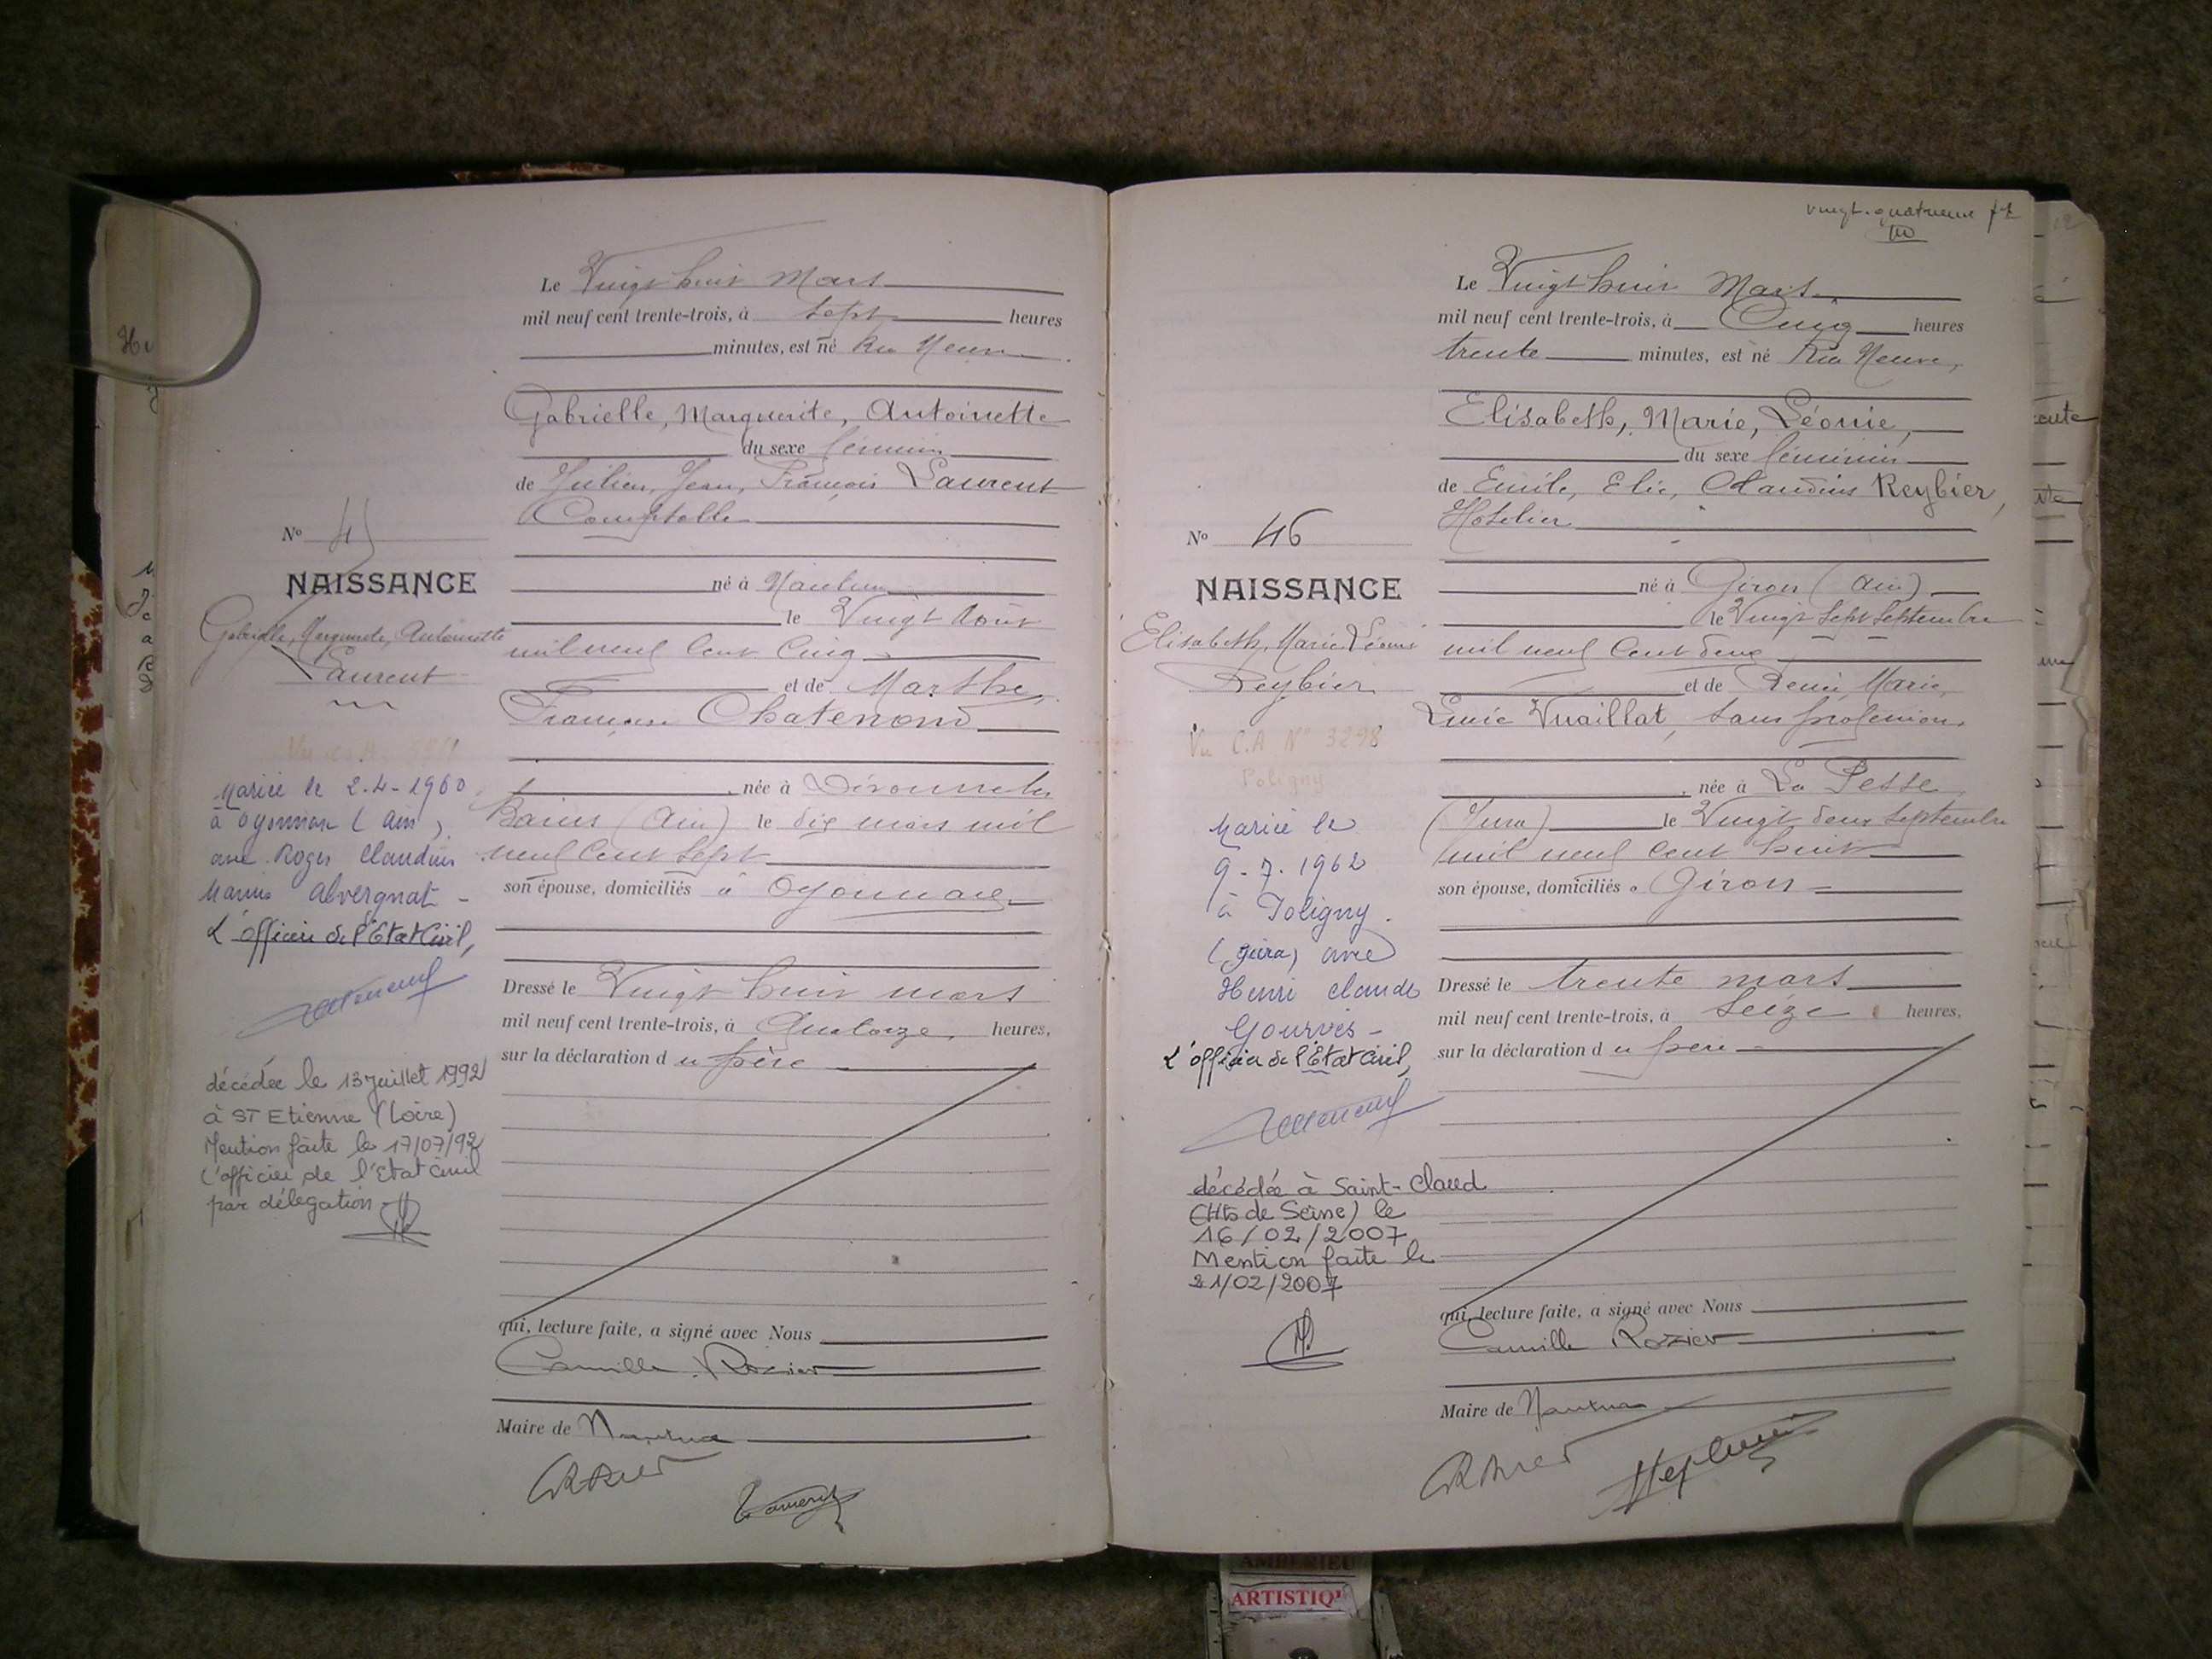 Le Vingt huit Mars
mil neuf cent trente-trois, à sept heures
minutes, est né Rue Neuve
Gabrielle, Marguerite, Antoinette
du sexe féminin
de Julien, Jean, François Laurent
Comptable
né à Nantua
le Vingt Août
mil neuf cent cinq
et de Marthe,
Françoise Chatenoud
née à Divonne les
Bains (Ain) le dix mars mil
neuf cent sept
son épouse, domiciliés à Oyonnax
Dressé le Vingt huit mars
mil neuf cent trente-trois, à Quatorze heures,
sur la déclaration du père
qui, lecture faite, a signé avec Nous
Camille Rozier
Maire de Nantua
No 45
NAISSANCE
Gabrielle, Marguerite, Antoinette
Laurent
Mariée le 2-4-1960
à Oyonnax (Ain),
avec Roger Claudius
Marius Alvergnat -
L'officier de l'Etat Civil,
décédée le 13 juillet 1992
à ST Etienne (Loire)
Mention faite le 17/07/92
L'officier de l'Etat civil
par délégation
vingt-quatrième ft
Le Vingt huit Mars
mil neuf cent trente-trois, à Cinq heures
trente minutes, est né Rue Neuve,
Elisabeth, Marie, Léonie,
du sexe féminin
de Emile, Elie, Claudius Reybier,
Hôtelier
né à Giron (Ain)
le Vingt sept Septembre
mil neuf cent deux
et de Renée Marie,
Vuaillat, sans profession,
née à La Pesse
(Jura) le Vingt deux Septembre
mil neuf cent huit
son épouse, domiciliés à Giron
Dressé le trente mars
mil neuf cent trente-trois, à Seize heures,
sur la déclaration du père
qui, lecture faite, a signé avec Nous
Camille Rozier
Maire de Nantua
No 46
NAISSANCE
Elisabeth, Marie Léonie
Reybier
Vu C.A N° 3298
Poligny
Mariée le
9-7-1962
à Poligny.
(Jura) avec
Henri Claude
Gourvès -
L'officier de l'Etat Civil,
décédée à Saint-Cloud
(Hts de Seine) le
16/02/2007
Mention faite le
21/02/2007
ARTISTIQ